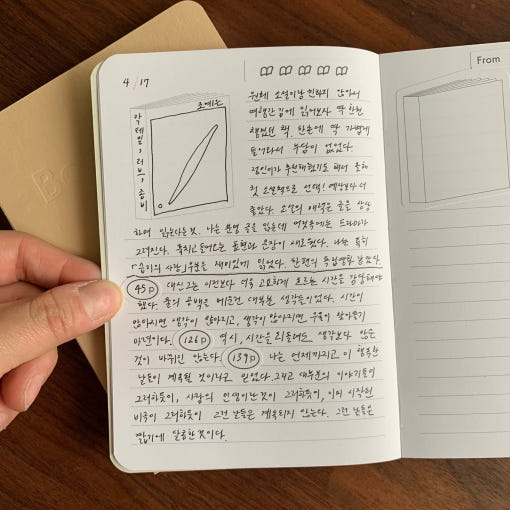 4/17
조예은
칵테일, 러브, 좀비
원체 소설이랑 친하지 않아서
여행간 김에 읽어보자 딱 한권
챙겼던 책. 한손에 딱 가볍게
들어와서 부담이 없었다.
지인이가 추천해줬기도 해서 올해
첫 소설책으로 선택! 예상보다 더
좋았다. 소설의 매력은 글을 상상
하며 읽는다는 것. 나는 분명 글을 읽는데 머릿속에는 드라마가
그려진다. 훅치고 들어오는 표현과 문장이 새로웠다. 나는 특히
「습지의 사랑」부분을 재미있게 읽었다. 한편의 독립영화 같았다.
45p 대신 그는 이전보다 더욱 고요하게 흐르는 시간을 감당해야
했다. 물의 공백은 메운건 대부분 생각들이었다. 시간이
많아지면 생각이 많아지고, 생각이 많아지면 우울이 찾아들기
마련이다. 126p 역시, 시간을 되돌려도 생각보다 많은
것이 바뀌진 않는다. 139p 나는 언제까지고 이 행복한
날들이 계속될 것이라고 믿었다. 그리고 대부분의 이야기들이
그러하듯이, 사람의 인생이란 것이 그러하듯이, 이미 시작된
비극이 그러하듯이 그런 날들은 계속되지 않는다. 그런 날들은
짧기에 달콤한 것이다.
From
B